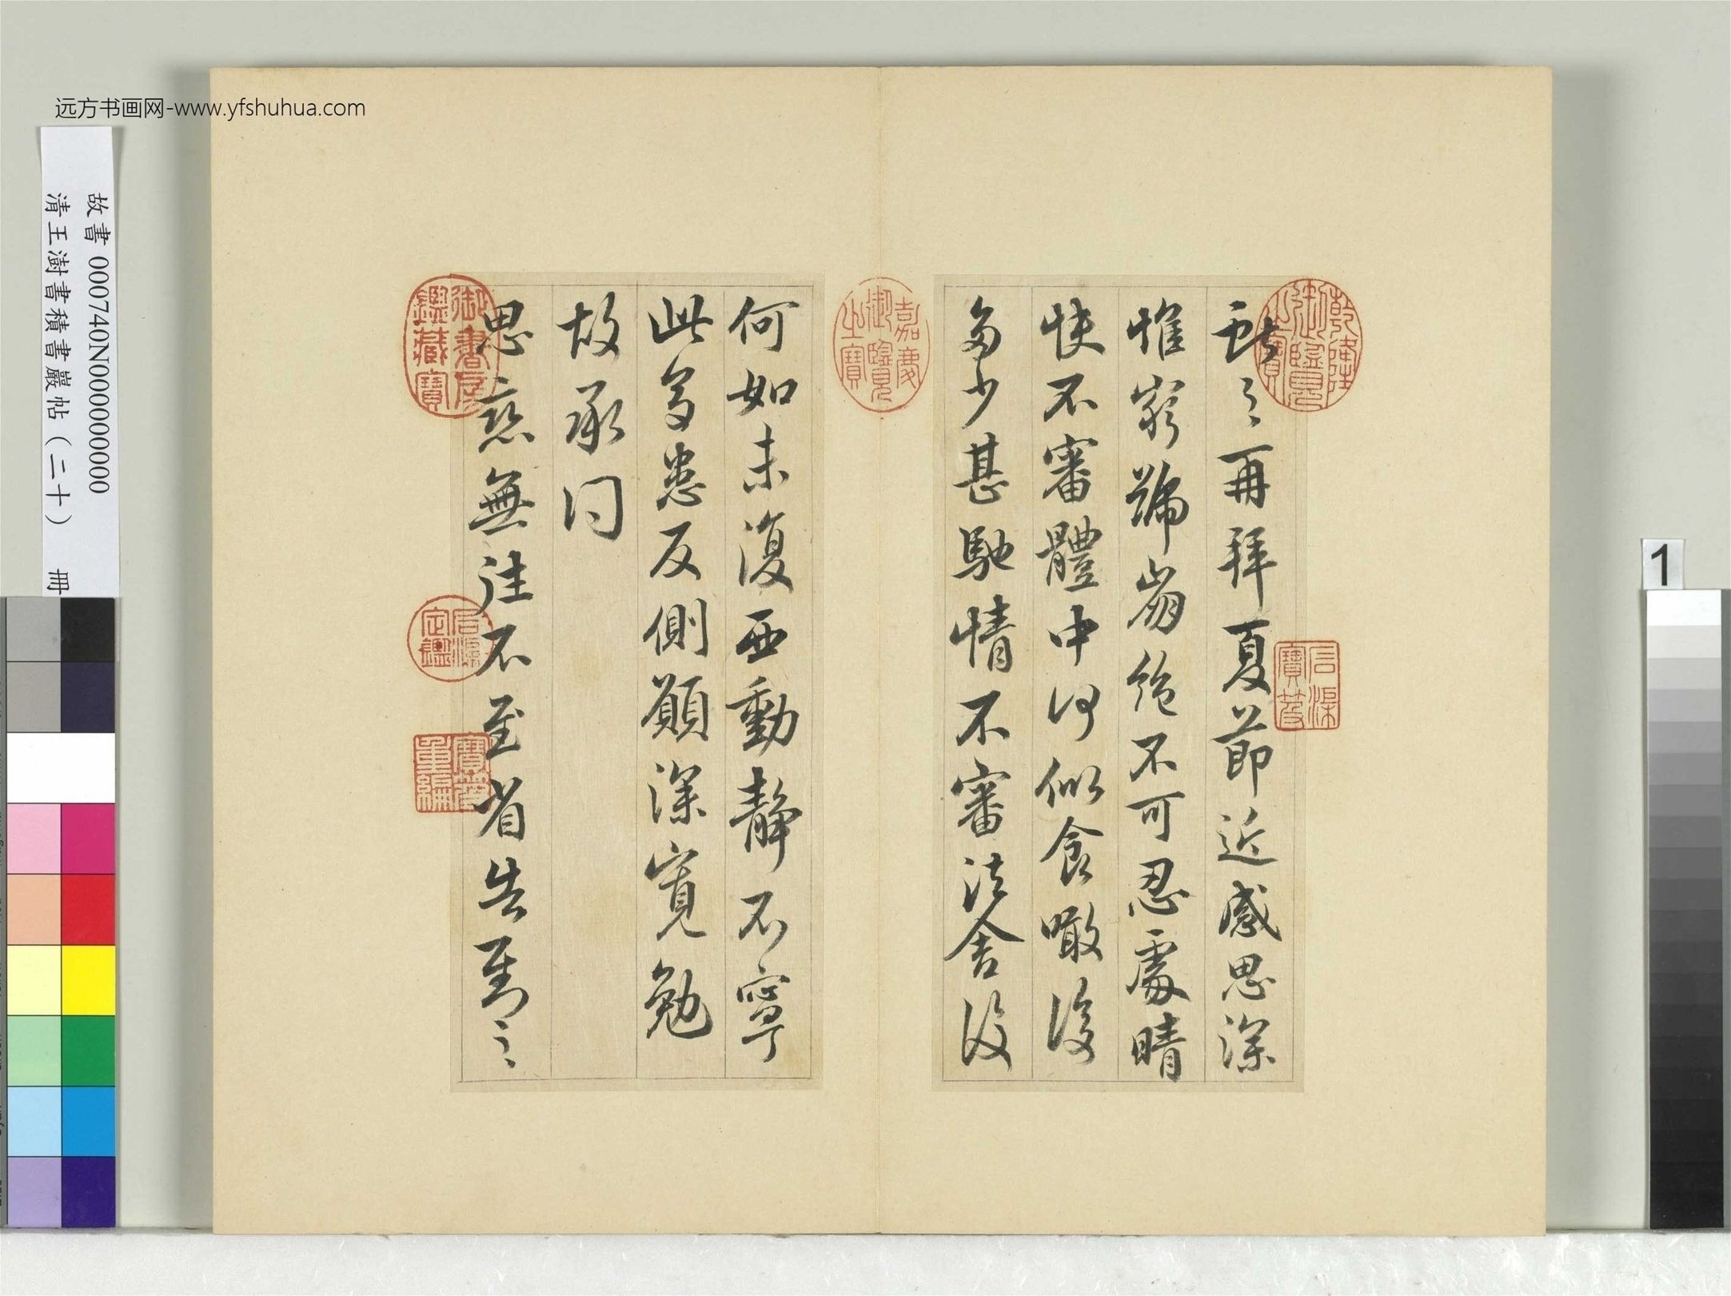 远方书画网-www.yfshuhua.com
故書 000740N000000000
清王澍書積書巖帖（二十） 冊
1
獻之再拜夏節近感思深
惟窮號崩絕不可忍處晴
快不審體中何似食噉復
多少甚馳情不審法舍復
何如未復西動靜不寧
此多患反側願深寬勉
故承問
思戀無往不至省告對之
乾隆御覽之寶
石渠寶笈
嘉慶御覽之寶
御書房鑑藏寶
石渠定鑑
寶笈重編